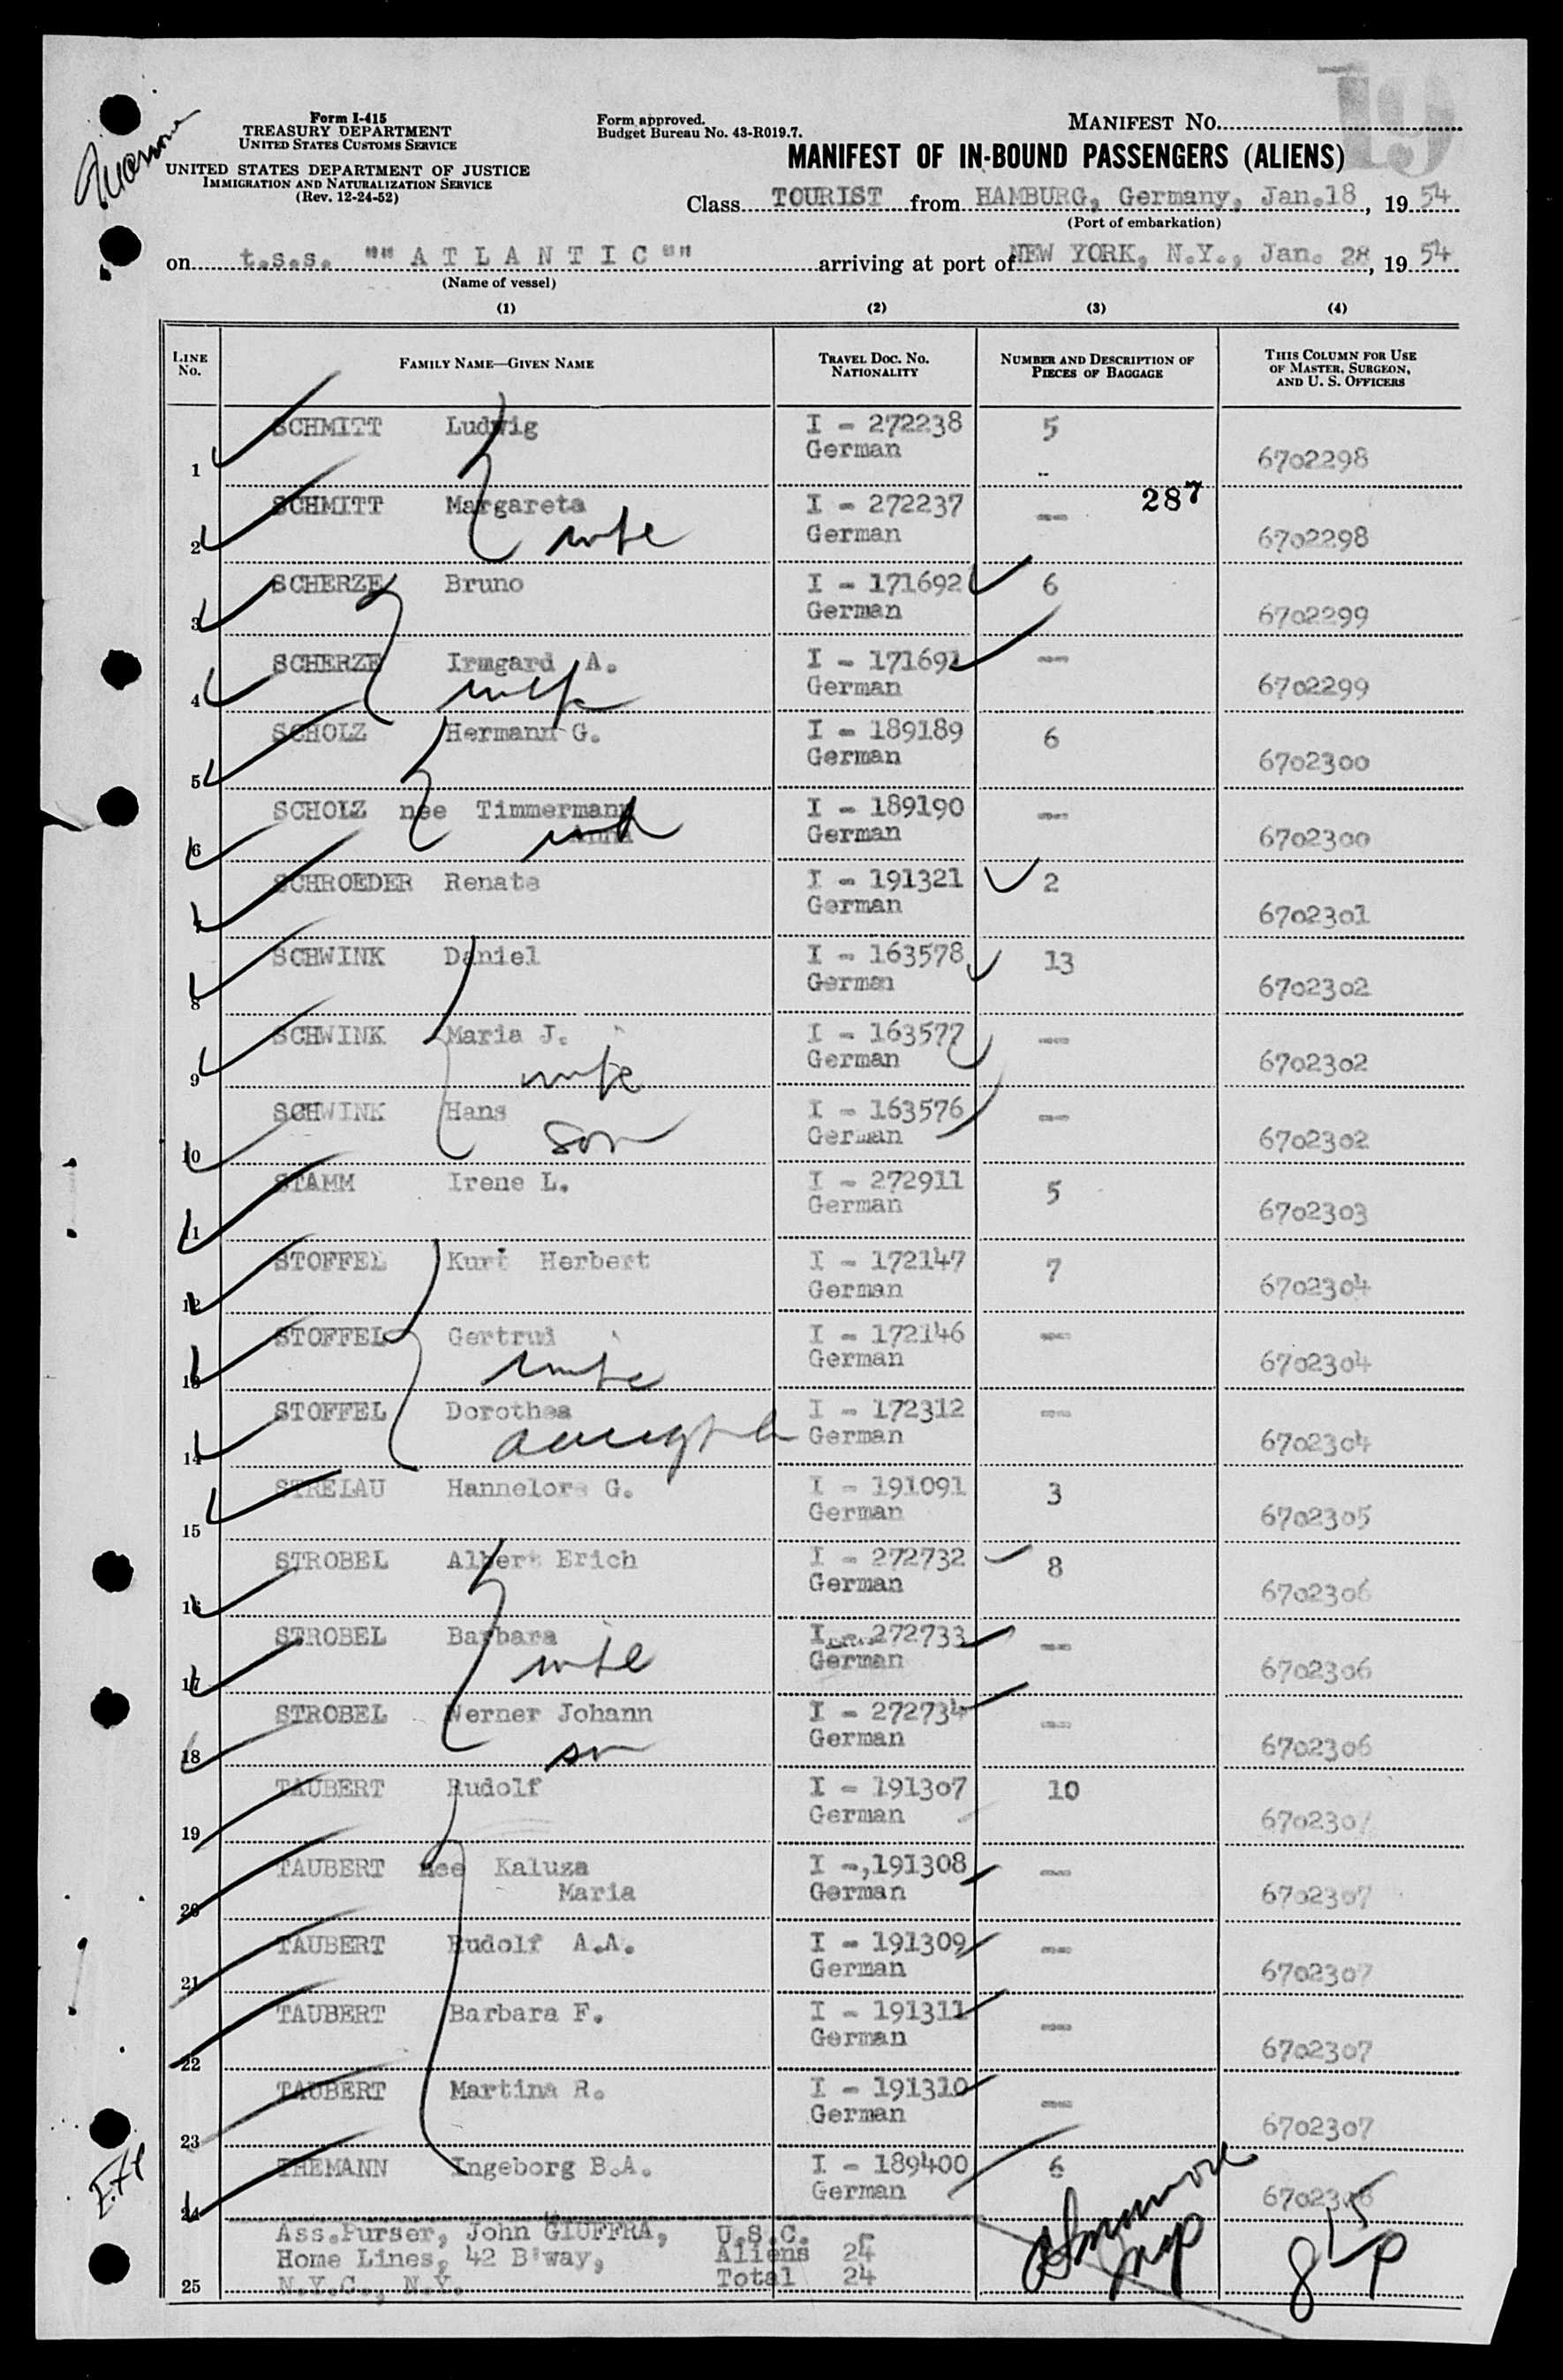 19
Form I-415
TREASURY DEPARTMENT
UNITED STATES CUSTOMS SERVICE
UNITED STATES DEPARTMENT OF JUSTICE
IMMIGRATION AND NATURALIZATION SERVICE
(Rev. 12-24-52)
Form approved.
Budget Bureau No. 43-R019.7.
MANIFEST NO.
MANIFEST OF IN-BOUND PASSENGERS (ALIENS)
Class TOURIST from HAMBURG, Germany, Jan.18, 19 54
(Port of embarkation)
on t.s.s. "" A T L A N T I C "" arriving at port of NEW YORK, N.Y., Jan. 28, 19 54
(Name of vessel)
(1) (2) (3) (4)
LINE No. FAMILY NAME—GIVEN NAME TRAVEL DOC. NO. NATIONALITY NUMBER AND DESCRIPTION OF PIECES OF BAGGAGE THIS COLUMN FOR USE OF MASTER, SURGEON, AND U. S. OFFICERS
1 SCHMITT Ludwig I - 272238 German 5 6702298
287
2 SCHMITT Margareta wife I - 272237 German -- 6702298
3 SCHERZE Bruno I - 171692 German 6 6702299
4 SCHERZE Irmgard A. wife I - 171691 German -- 6702299
5 SCHOLZ Hermann G. I - 189189 German 6 6702300
6 SCHOLZ nee Timmermann Anna I - 189190 German -- 6702300
7 SCHROEDER Renate I - 191321 German 2 6702301
8 SCHWINK Daniel I - 163578 German 13 6702302
9 SCHWINK Maria J. wife I - 163577 German -- 6702302
10 SCHWINK Hans son I - 163576 German -- 6702302
11 STAMM Irene L. I - 272911 German 5 6702303
12 STOFFEL Kurt Herbert I - 172147 German 7 6702304
13 STOFFEL Gertrud wife I - 172146 German -- 6702304
14 STOFFEL Dorothea daughter I - 172312 German -- 6702304
15 STRELAU Hannelore G. I - 191091 German 3 6702305
16 STROBEL Albert Erich I - 272732 German 8 6702306
17 STROBEL Barbara wife I - 272733 German -- 6702306
18 STROBEL Werner Johann son I - 272734 German -- 6702306
19 TAUBERT Rudolf I - 191307 German 10 6702307
20 TAUBERT nee Kaluza Maria I -,191308 German -- 6702307
21 TAUBERT Rudolf A.A. I - 191309 German -- 6702307
22 TAUBERT Barbara F. I - 191311 German -- 6702307
23 TAUBERT Martina R. I - 191310 German -- 6702307
24 THEMANN Ingeborg B.A. I - 189400 German 6
Ass.Purser, John GIUFFRA, U.S.C. -
Home Lines, 42 B'way, Aliens 24
25 N.Y.C., N.Y. Total 24